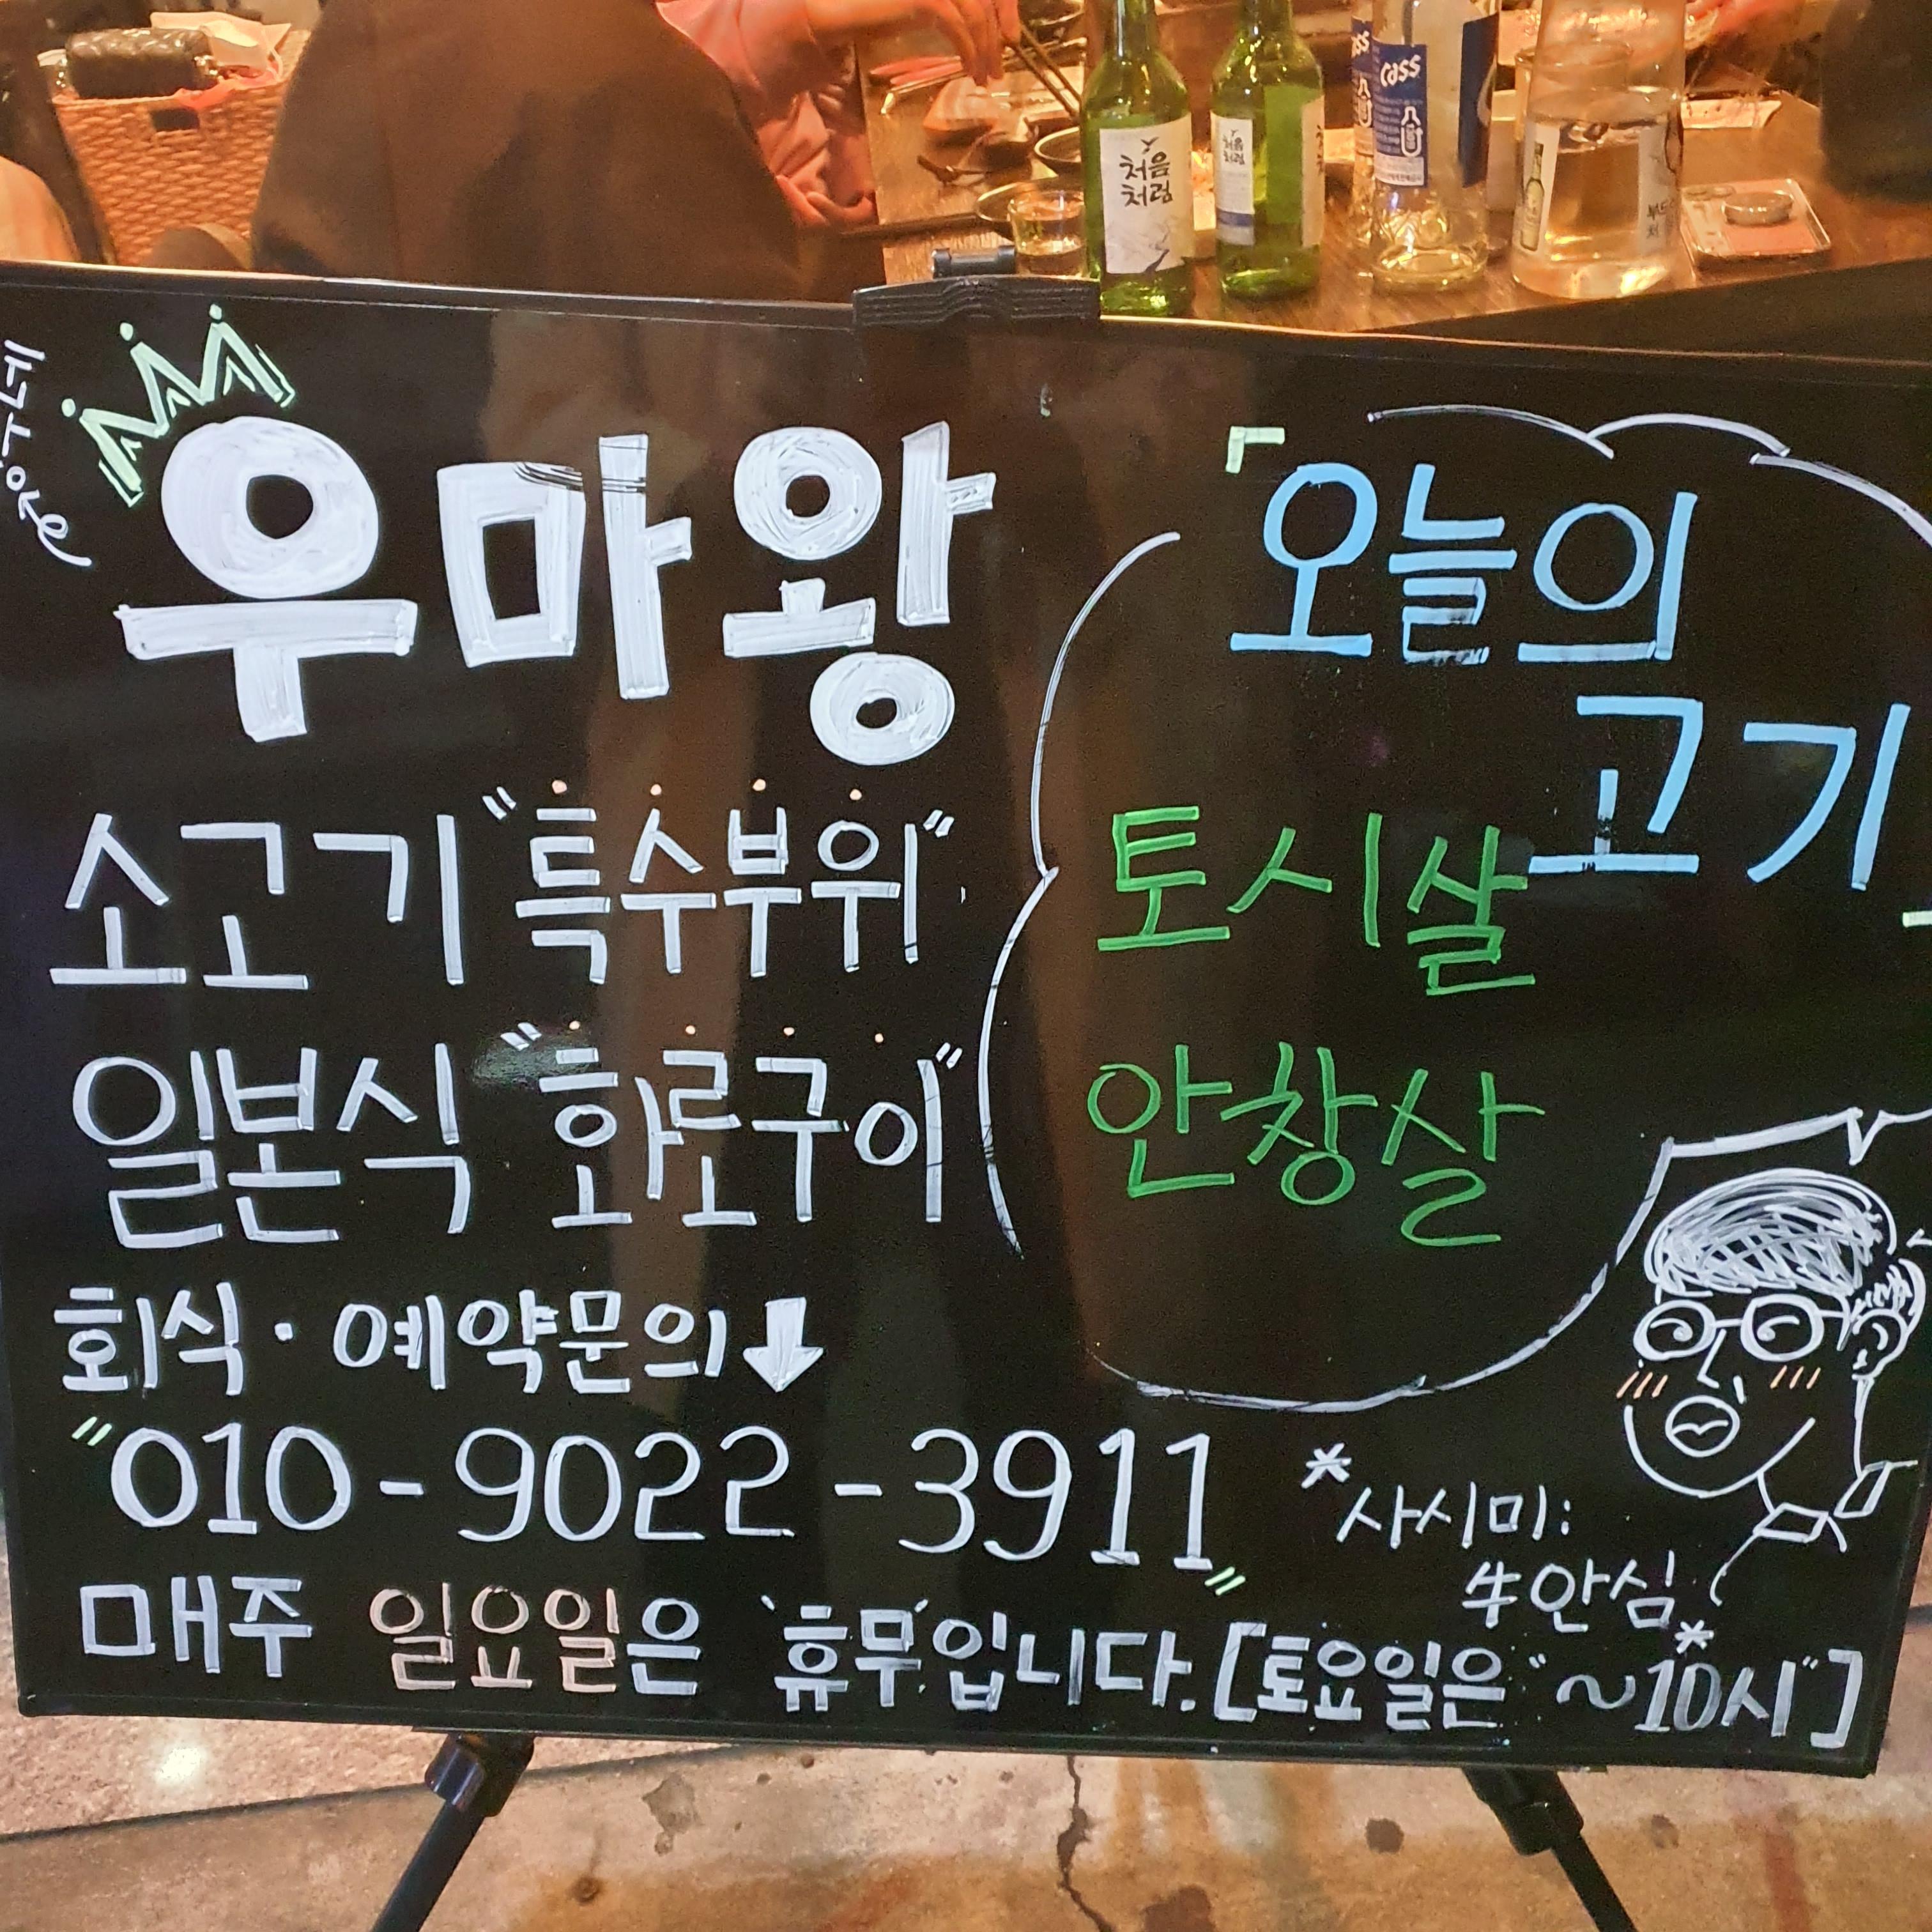 처음
처럼
처음
처럼
cass
cass
우마왕
「오늘의
고기」
소고기 "특수부위"
토시살
일본식 "화로구이"
안창살
회식 · 예약문의
"010-9022-3911"
*사시미:
牛안심*
매주 일요일은 '휴무'입니다. [토요일은 "~10시"]